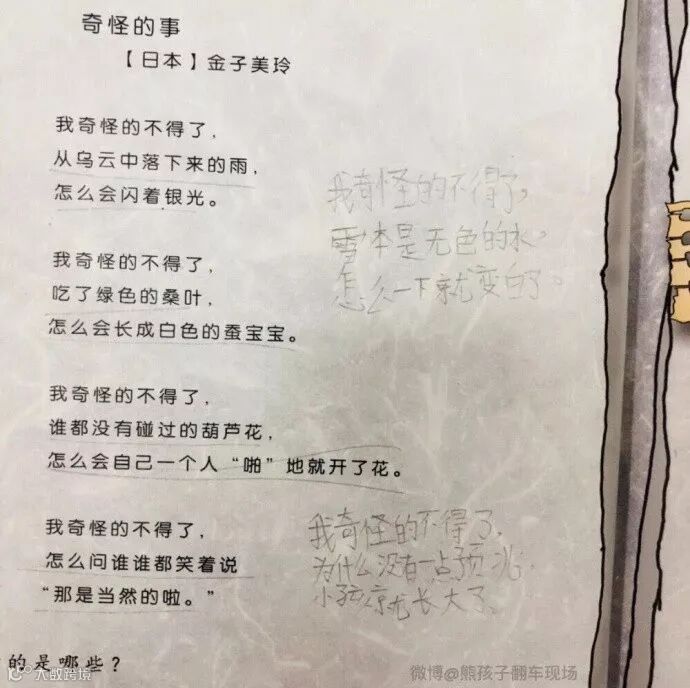 奇怪的事
【日本】金子美玲
我奇怪的不得了，
从乌云中落下来的雨，
怎么会闪着银光。
我奇怪的不得了，
雪本是无色的水，
怎么一下就变白了。
我奇怪的不得了，
吃了绿色的桑叶，
怎么会长成白色的蚕宝宝。
我奇怪的不得了，
谁都没有碰过的葫芦花，
怎么会自己一个人“啪”地就开了花。
我奇怪的不得了，
怎么问谁谁都笑着说
“那是当然的啦。”
我奇怪的不得了，
为什么没有一点预兆，
小孩就长大了。
的是哪些？
大数跨境
微博@熊孩子翻车现场